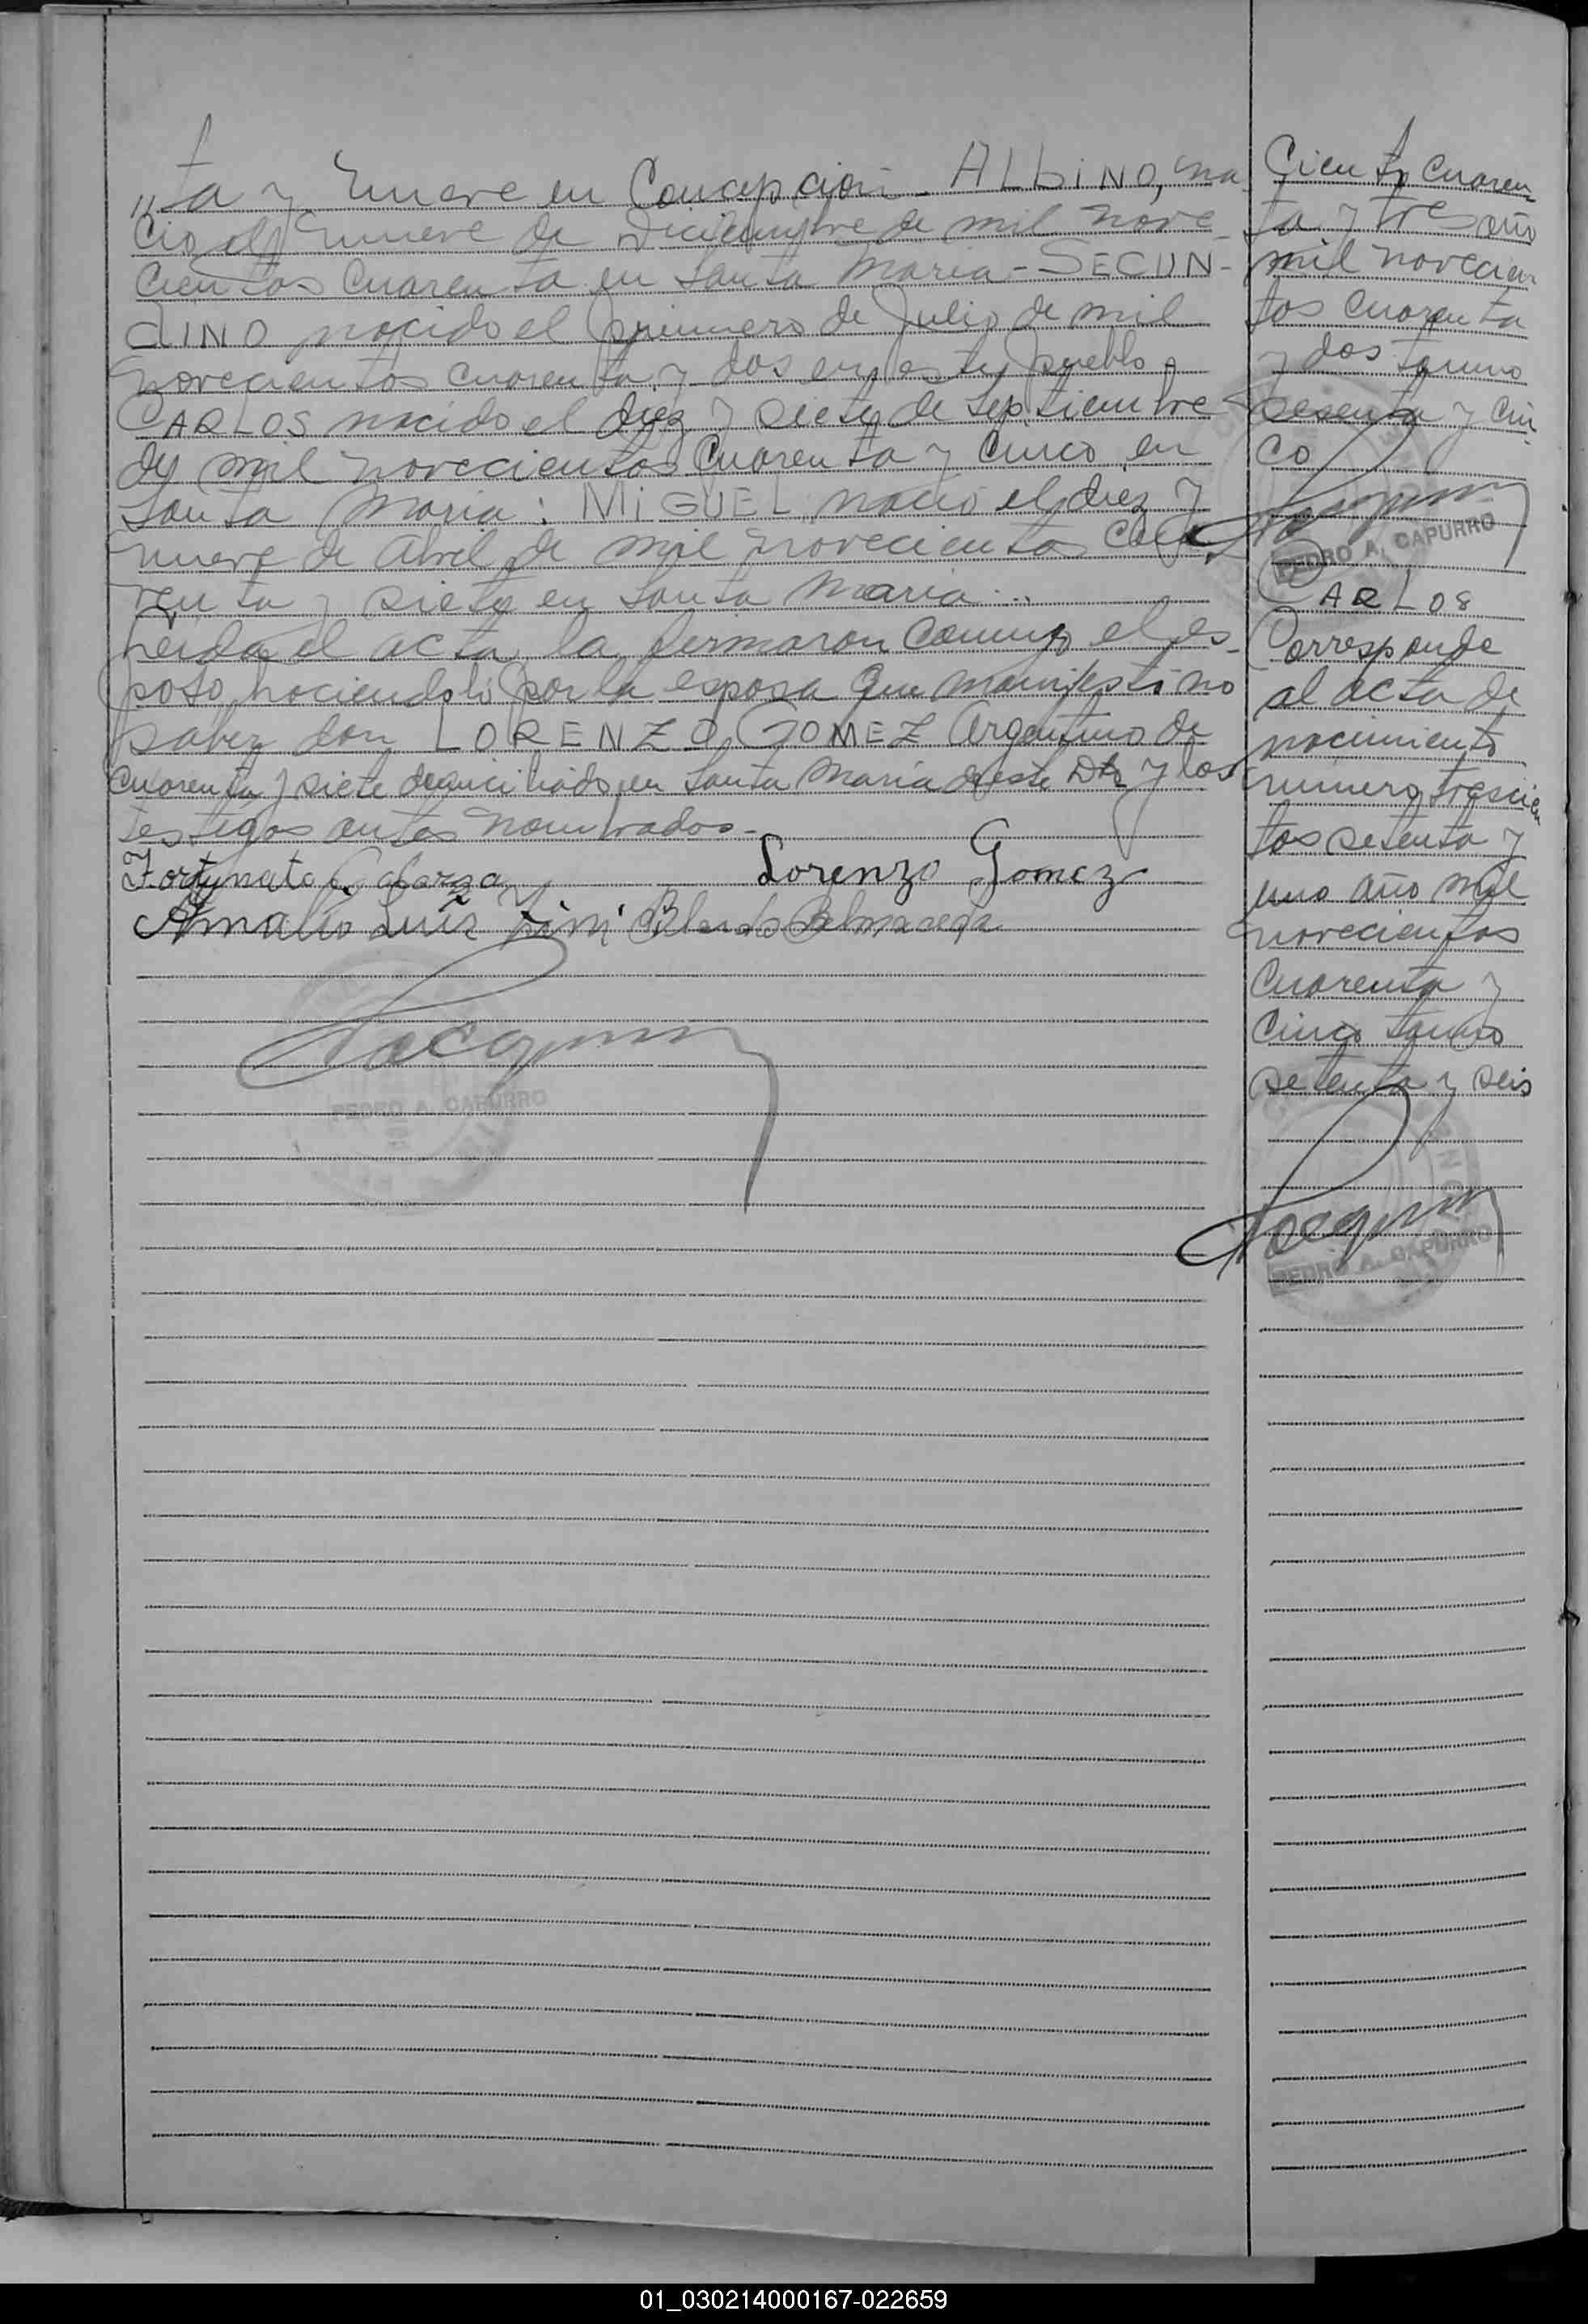 "ta y nueve en Concepción - ALbiNO, na-
ció el nueve de Diciembre de mil nove-
cientos cuarenta en Santa Maria - SECUN-
diNO nacido el primero de Julio de mil
novecientos cuarenta y dos en este pueblo -
CARLOS nacido el diez y siete de Septiembre
de mil novecientos cuarenta y cinco en
Santa Maria: MiGUEL nació el diez y
nueve de Abril de mil novecientos cua-
renta y siete en Santa Maria
Leida el acta, la firmaron conmigo el es-
poso, haciendolo por la esposa que manifestó no
saber don LORENZO GOMEZ Argentino de
cuarenta y siete domiciliado en Santa Maria de este Dto y los
testigos antes nombrados -
Fortunato Lorenzo Gomez
Amalio Luis
PEDRO A. CAPURRO
Ciento cuaren-
ta y tres año
mil novecien-
tos cuarenta
y dos tomo
sesenta y cin-
co
PEDRO A. CAPURRO
CARLOS
Corresponde
al acta de
nacimiento
número trescien
tos setenta y
uno año mil
novecientos
cuarenta y
cinco tomo
setenta y seis
PEDRO A. CAPURRO
01_030214000167-022659